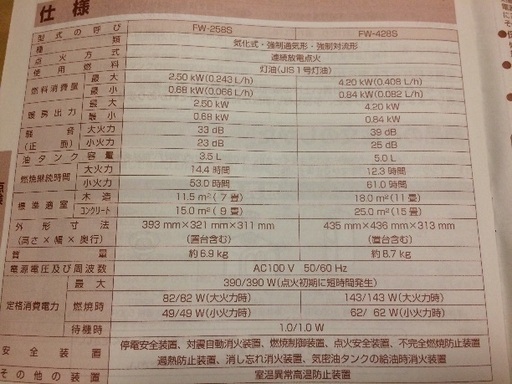 仕様
型式の呼び FW-258S FW-428S
種類 気化式・強制通気形・強制対流形
点火方式 連続放電点火
使用燃料 灯油(JIS1号灯油)
燃料消費量 最大 2.50 kW(0.243 L/h) 4.20 kW(0.408 L/h)
最小 0.68 kW(0.066 L/h) 0.84 kW(0.082 L/h)
暖房出力 最大 2.50 kW 4.20 kW
最小 0.68 kW 0.84 kW
騒音 大火力 33 dB 39 dB
(正面) 小火力 23 dB 25 dB
油タンク容量 3.5 L 5.0 L
燃焼継続時間 大火力 14.4 時間 12.3 時間
小火力 53.0 時間 61.0 時間
標準適室 木造 11.5 m²(7畳) 18.0 m²(11畳)
コンクリート 15.0 m²(9畳) 25.0 m²(15畳)
外形寸法 393 mm×321 mm×311 mm 435 mm×436 mm×313 mm
(高さ×幅×奥行) (置台含む) (置台含む)
質量 約6.9 kg 約8.7 kg
電源電圧及び周波数 AC100 V 50/60 Hz
定格消費電力 最大 390/390 W(点火初期に短時間発生)
燃焼時 82/82 W(大火力時) 143/143 W(大火力時)
49/49 W(小火力時) 62/ 62 W(小火力時)
待機時 1.0/1.0 W
安全装置 停電安全装置、対震自動消火装置、燃焼制御装置、点火安全装置、不完全燃焼防止装置
過熱防止装置、消し忘れ消火装置、気密油タンクの給油時消火装置
その他の装置 室温異常高温防止装置